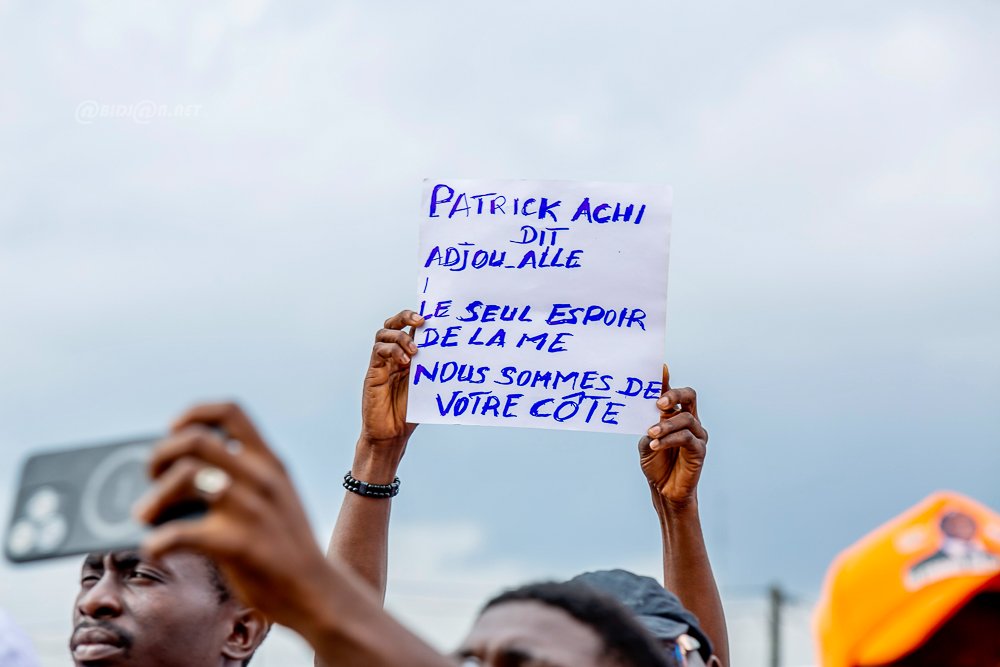 @BIDJ@N.NET
PATRICK ACHI
DIT
ADJOU_ALLE
LE SEUL ESPOIR
DE LA ME
NOUS SOMMES DE
VOTRE CÔTE